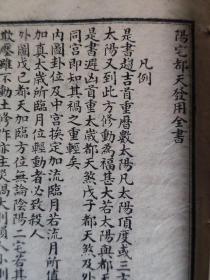 陽宅都天發用全書
凡例
是書趨吉首重曆數太陽凡太陽頂度或三方
太陽又到此方修動為福甚大若太陽與都天
是書避凶首重太歲都天煞戊子都天煞及外
同宮即知其禍之重輕矣
內圖卦位及中宮挨定加流臨月若流月所值
加真太歲所臨月位輕動者必致殺人
外圖戊己都天加臨方位無論陰陽二宅若其